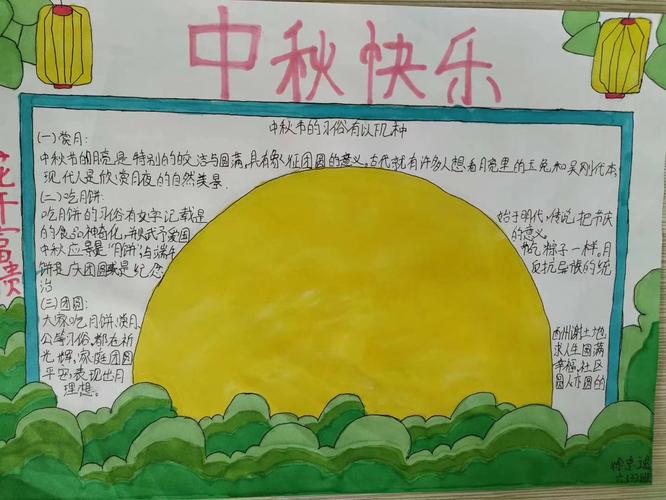 中秋快乐
花开富贵
中秋节的习俗有以下几种
(一)赏月:
中秋节的月亮是特别的皎洁与圆满,具有象征团圆的意义。古代就有许多人想看月亮里的玉兔和吴刚代本,
现代人是欣赏月夜的自然美景.
(二)吃月饼:
吃月饼的习俗有文字记载是 始于明代,传说把节庆
的食品神奇化,并赋予爱国 的意义。
中秋应景是"月饼"与端午 节吃粽子一样。月
饼是庆团圆或是纪念 反抗异族的统
治
(三)团圆:
大家吃月饼、赏月、 西州谢土地
公等习俗,都在祈 求人生圆满
光辉,家庭团圆 幸福,社区
平安,表现出月 圆人亦圆的
理想.